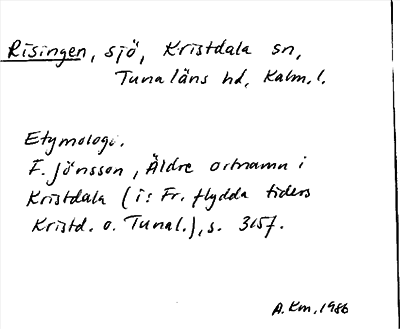 Risingen, sjö, Kristdala sn,
Tunaläns hd, Kalm. l.
Etymologi.
F. Jönsson, Äldre ortnamn i
Kristdala (i: Fr. flydda tiders
Kristd. o. Tunal.), s. 315f.
A. Km, 1986